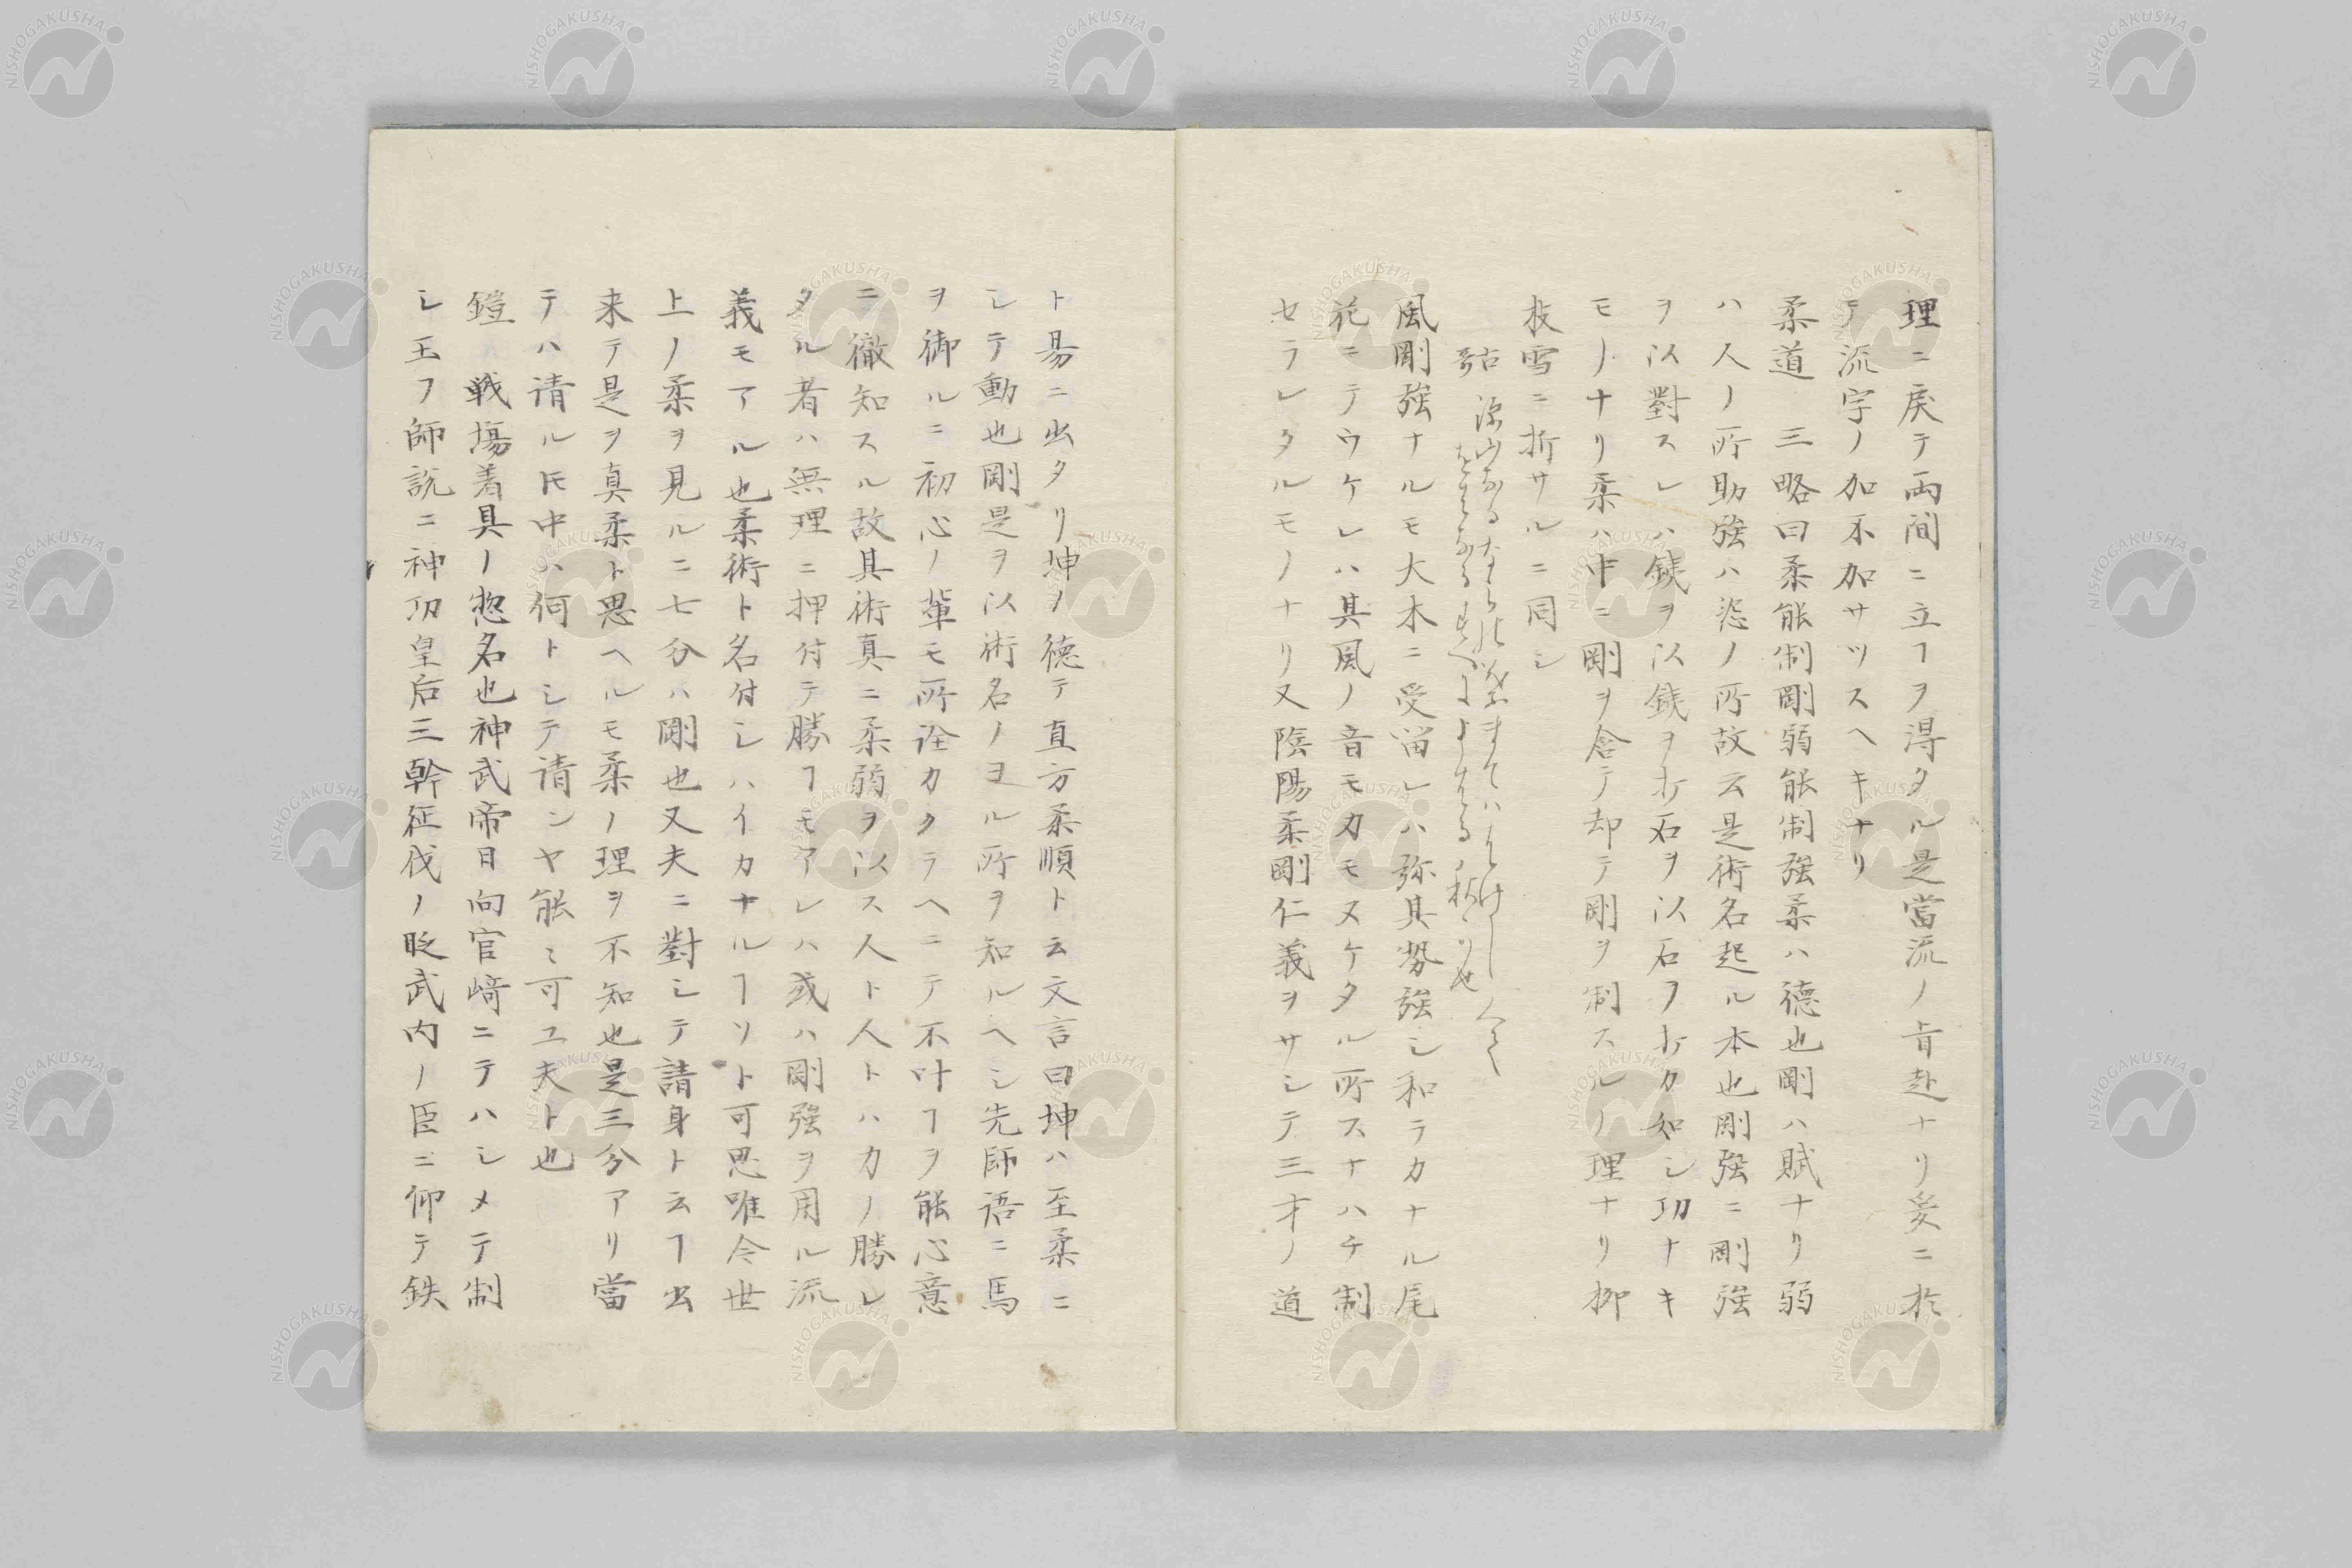 理ニ戻テ両間ニ立ヿヲ得タル是當流ノ旨赴ナリ爰ニ於
テ流字ノ加不加サツスヘキナリ
柔道　三略曰柔能制剛弱能制強柔ハ徳也剛ハ賊ナリ弱
ハ人ノ所助強ハ恣ノ所故云是術名起ル本也剛強ニ剛強
ヲ以對スレハ銕ヲ以銕ヲ折石ヲ以石ヲ折カ如シ功ナキ
モノナリ柔ハ中ニ剛ヲ含テ却テ剛ヲ制スルノ理ナリ柳
枝雪ニ折サルニ同シ
風剛強ナルモ大木ニ受留レハ弥其勢強シ和ラカナル尾
花ニテウケレハ其風ノ音モ力モヌケタル所スナハチ制
セラレタルモノナリ又陰陽柔剛仁義ヲサシテ三才ノ道
ト易ニ出タリ坤ノ徳テ直方柔順ト云文言曰坤ハ至柔ニ
シテ動也剛是ヲ以術名ノヨル所ヲ知ルヘシ先師語ニ馬
ヲ御ルニ初心ノ輩モ所詮カクラヘニテ不叶ヿヲ能心意
ニ徹知スル故其術真ニ柔弱ヲ以ス人ト人トハカノ勝レ
タル者ハ無理ニ押付テ勝ヿモアレハ或ハ剛強ヲ用ル流
義モアル也柔術ト名付シハイカナルヿソト可思唯今世
上ノ柔ヲ見ルニ七分ハ剛也又夫ニ對シテ請身ト云ヿ出
来テ是ヲ真柔ト思ヘルモ柔ノ理ヲ不知也是三分アリ當
テハ請ルㇳモ中ハ何トシテ請ンヤ能〻可工夫ト也
鎧　戦場着具ノ惣名也神武帝日向宮﨑ニテハシメテ制
シ玉フ師説ニ神功皇后三幹征伐ノ眨武内ノ臣ニ仰テ鉄